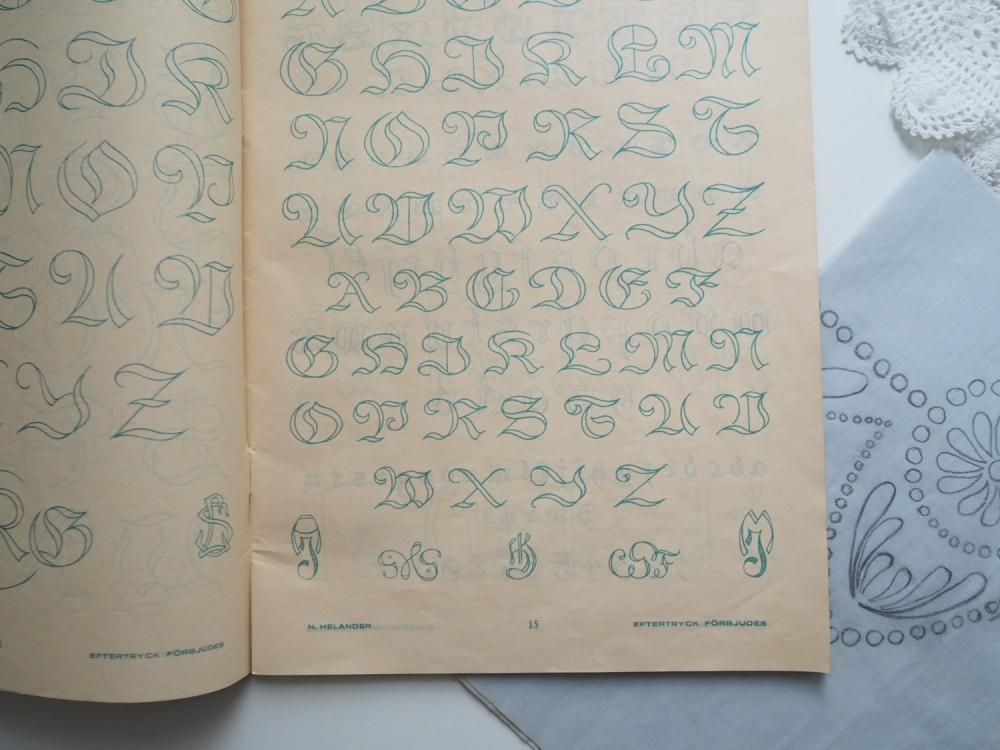 I K
N O P
S U V
Y Z
R G
EFTERTRYCK FÖRBJUDES
G H I K L M
N O P R S T
U V W X Y Z
A B C D E F
G H I K L M N
O P R S T U V
W X Y Z
N. HELANDER
15
EFTERTRYCK FÖRBJUDES